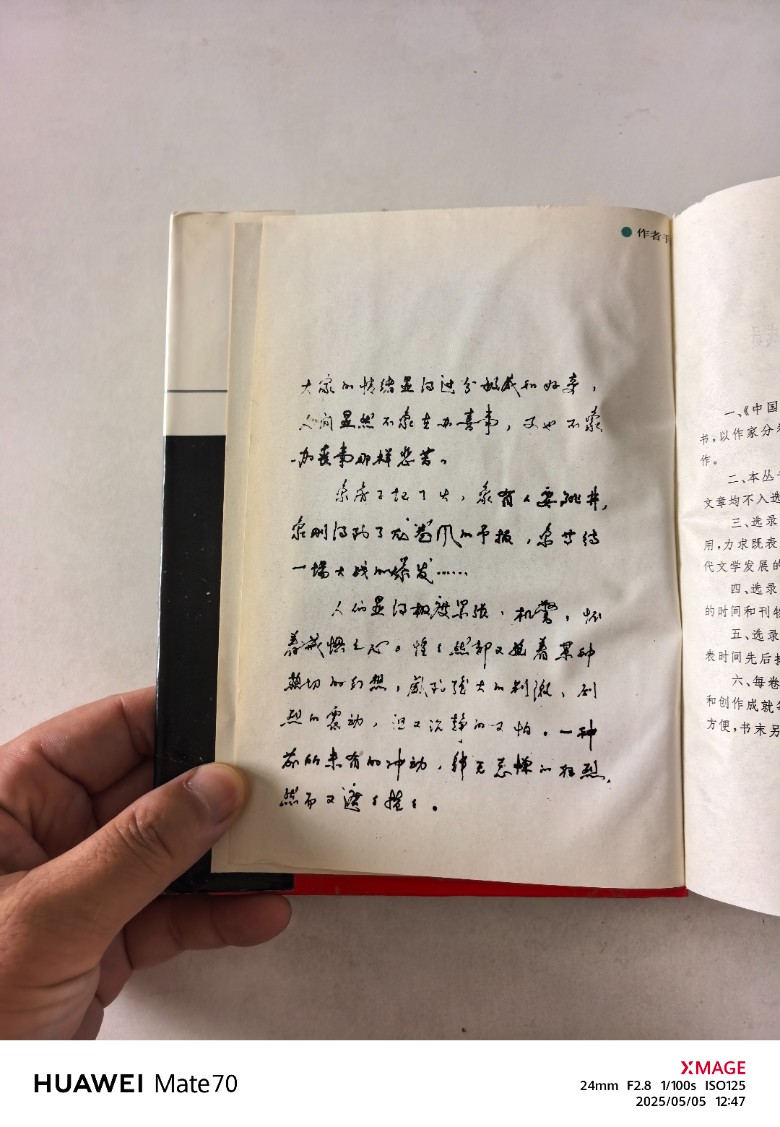 ● 作者手
大家的情绪显得过分敏感和好奇，
人间显然不象去办喜事，又也不象
办丧事那样悲苦。
象房子起了火，象有人要跳井，
象刚得到了龙卷风的予报，象等待
一场大战的爆发……
人们显得极度紧张、机警，怀
着戒惧之心。惶惶然却又抱着某种
热切的幻想，感到强大的刺激，剧
烈的震动，但又沉静的又怕。一种
前所未有的冲动，肆无忌惮的狂烈，
然而又遮遮掩掩。
一、《中国
书，以作家分
作。
二、本丛
文章均不入选
三、选录
用，力求既表
代文学发展的
四、选录
的时间和刊物
五、选录
表时间先后
六、每卷
和创作成就
方便，书末另
HUAWEI Mate70
XMAGE
24mm F2.8 1/100s ISO125
2025/05/05 12:47